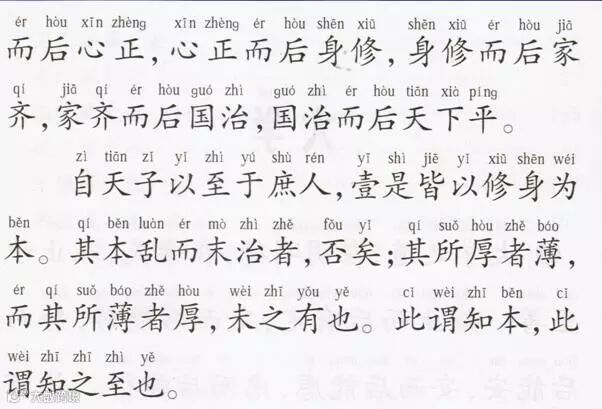 ér hòu xīn zhèng xīn zhèng ér hòu shēn xiū shēn xiū ér hòu jiā
而后心正,心正而后身修,身修而后家
qí jiā qí ér hòu guó zhì guó zhì ér hòu tiān xià píng
齐,家齐而后国治,国治而后天下平。
zì tiān zǐ yǐ zhì yú shù rén yī shì jiē yǐ xiū shēn wéi
自天子以至于庶人,壹是皆以修身为
běn qí běn luàn ér mò zhì zhě fǒu yǐ qí suǒ hòu zhě báo
本。其本乱而末治者,否矣;其所厚者薄,
ér qí suǒ báo zhě hòu wèi zhī yǒu yě cǐ wèi zhī běn cǐ
而其所薄者厚,未之有也。此谓知本,此
wèi zhī zhī zhì yě
谓知之至也。